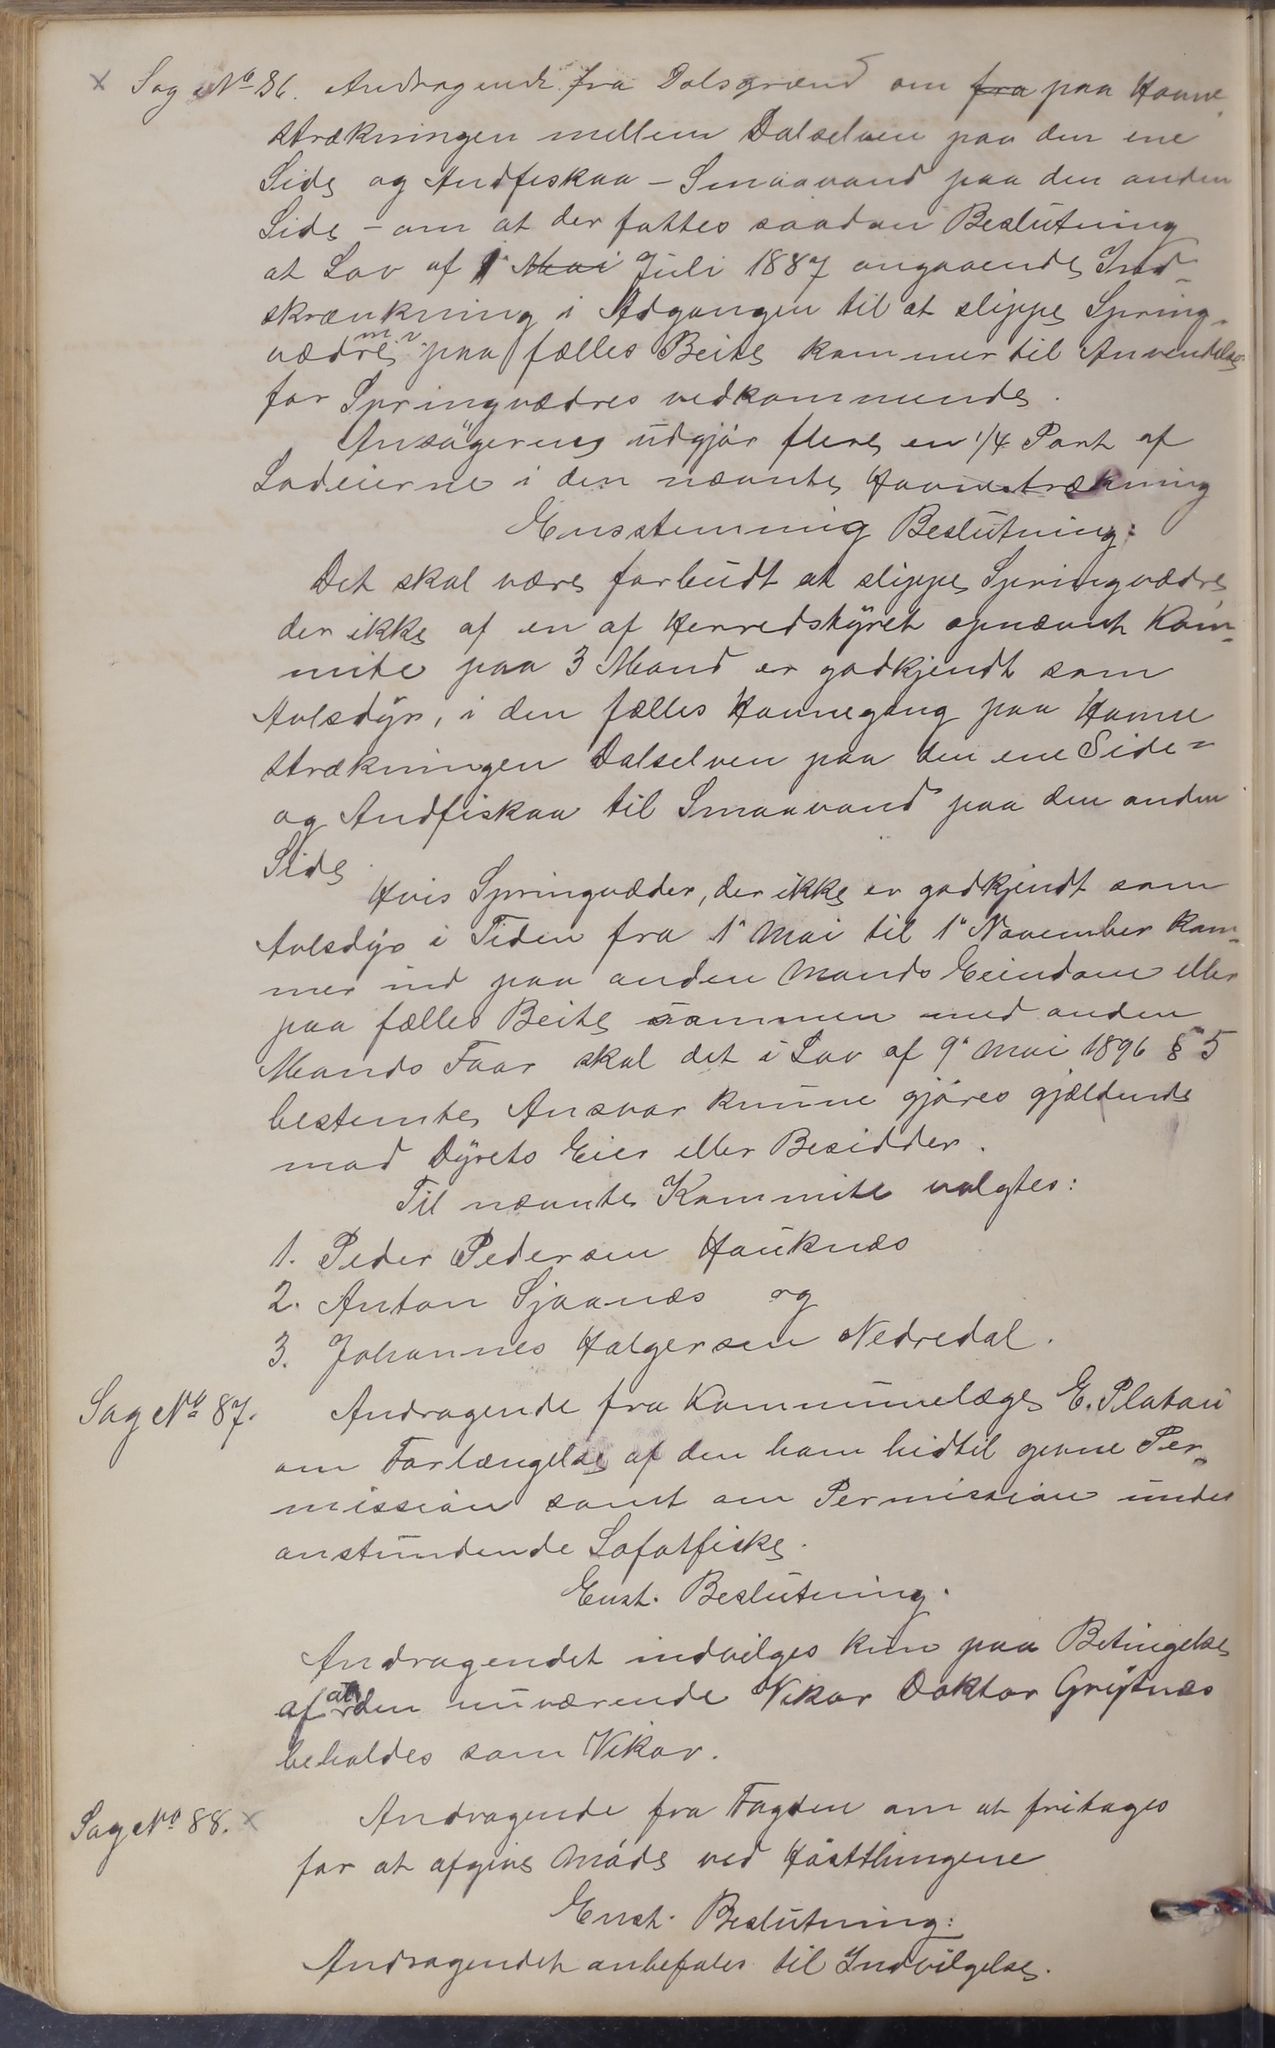 × Sag No 86. Andragende fra Dalsgrænd om fra paa Havne-
strækningen mellem Dalselven paa den ene
Side og Andfiskaa - Smaavand paa den anden
Side - om at der fattes saadan Beslutning
at Lov af 1" Mai Juli 1887 angaaende Ind-
skrænkning i Adgangen til at slippe Spring-
vædre m v. paa fælles Beite kommer til Anvendelse
for Springvædres vedkommende.
Ansøgerne udgjør flere en 1/4 Part af
Lodeierne i den nævnte Havnestrækning
Ensstemmig Beslutning:
Det skal være forbudt at slippe Springvædre,
der ikke af en af Herredstyret opnævnt Kom-
mite paa 3 Mand er godkjendt som
Avlsdyr, i den fælles Havnegang paa Havne
strækningen Dalselven paa den ene Side =
og Andfiskaa til Smaavand paa den anden
Side.
Hvis Springvæder, der ikke er godkjendt som
Avlsdyr i Tiden fra 1" Mai til 1" November kom-
mer ind paa anden Mands Eiendom eller
paa fælles Beite sammen med anden
Mands Faar skal det i Lov af 9" Mai 1896 § 5
bestemte Ansvar kunne gjøres gjældende
mod Dyrets Eier eller Besidder.
Til nævnte Kommite valgtes:
1. Peder Pedersen Hauknæs
2. Anton Sjaanæs og
3. Johannes Halgersen Nedredal.
Sag No 87. Andragende fra Kommunelæge E. Platou
om Forlængelse af den ham hidtil givne Per-
mission samt om Permission under
anstundende Lofotfiske.
Enst. Beslutning.
Andragendet indvilges kun paa Betingelse
af at den nuværende Vikar Doktor Grytnæs
beholdes som Vikar.
Sag No 88. × Andragende fra Fogden om at fritages
for at afgive Møde ved Høstthingene
Enst. Beslutning:
Andragendet anbefales til Indvilgelse.